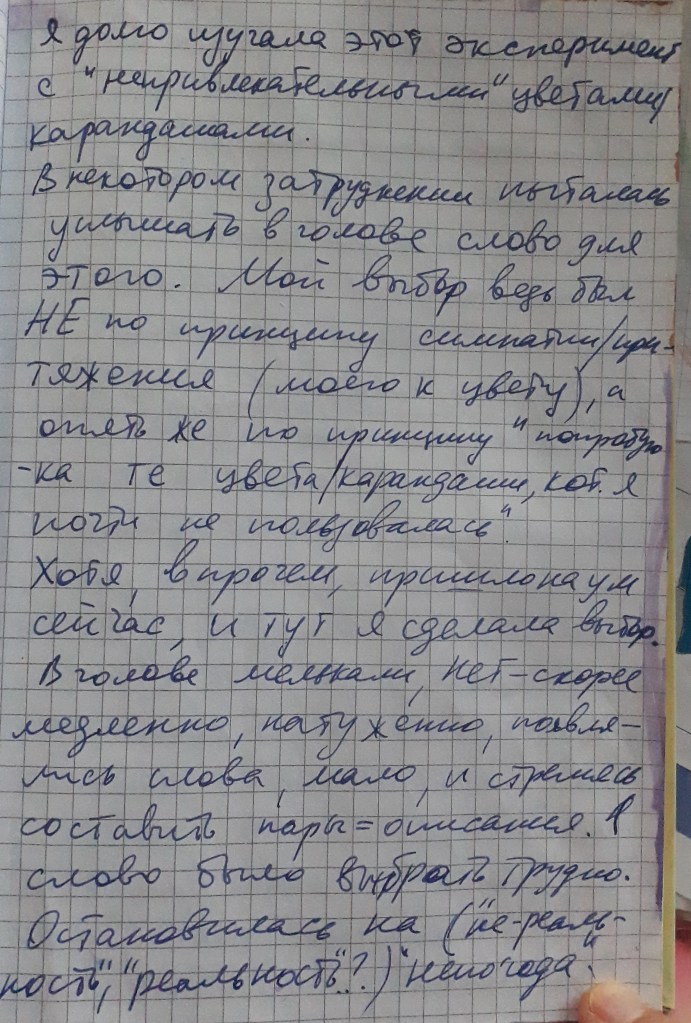 Я долго изучала этот эксперимент
с "непривлекательными" цветами/
карандашами.
В некотором затруднении пыталась
услышать в голове слово для
этого. Мой выбор ведь был
НЕ по принципу симпатии/при-
тяжения (моего к цвету), а
опять же по принципу "попробую
-ка те цвета/карандаши, кот. я
почти не пользовалась".
Хотя, впрочем, пришло на ум
сейчас, и тут я сделала выбор.
В голове мелькали, нет – скорее
медленно, натужено, появля-
лись слова, мало, и стремясь
составить пары = описания. 1
слово было выбрать трудно.
Остановилась на ("не-реаль-
ность", "реальность"?) "непогода".